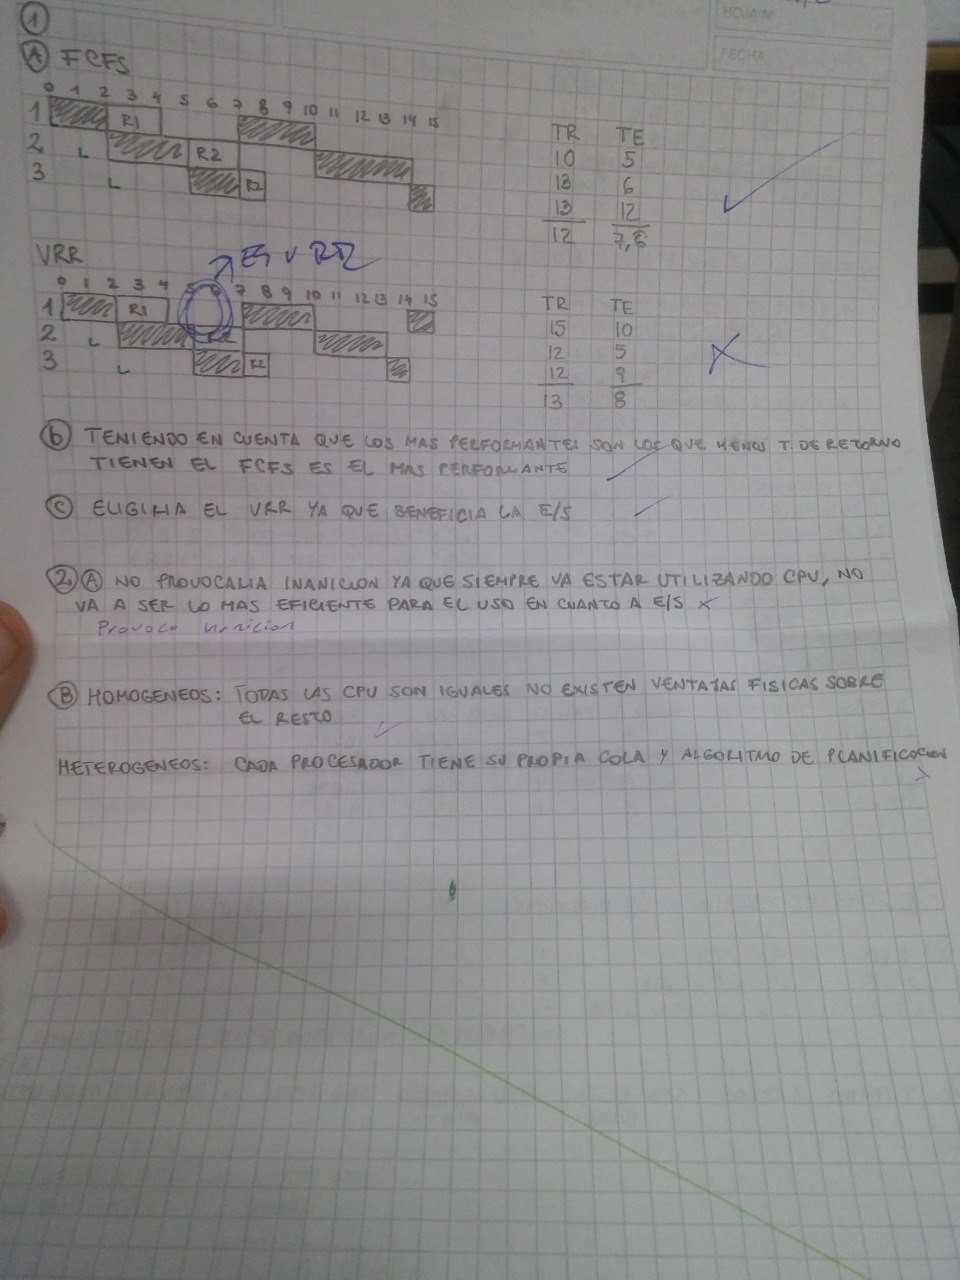 HOJA Nº
FECHA
1
A FCFS
0 1 2 3 4 5 6 7 8 9 10 11 12 13 14 15
1 R1
2 L R2
3 L R2
TR TE
10 5
13 6
13 12
12 7,6
VRR
ES VRR
0 1 2 3 4 5 6 7 8 9 10 11 12 13 14 15
1 R1
2 L
3 L R2
TR TE
15 10
12 5
12 9
13 8
b TENIENDO EN CUENTA QUE LOS MAS PERFORMANTES SON LOS QUE MENOS T. DE RETORNO
TIENEN EL FCFS ES EL MAS PERFORMANTE
C ELIGIRIA EL VRR YA QUE BENEFICIA LA E/S
2 A NO PROVOCARIA INANICION YA QUE SIEMPRE VA ESTAR UTILIZANDO CPU, NO
VA A SER LO MAS EFICIENTE PARA EL USO EN CUANTO A E/S X
Provoca inanicion
B HOMOGENEOS: TODAS LAS CPU SON IGUALES NO EXISTEN VENTAJAS FISICAS SOBRE
EL RESTO
HETEROGENEOS: CADA PROCESADOR TIENE SU PROPIA COLA Y ALGORITMO DE PLANIFICACION